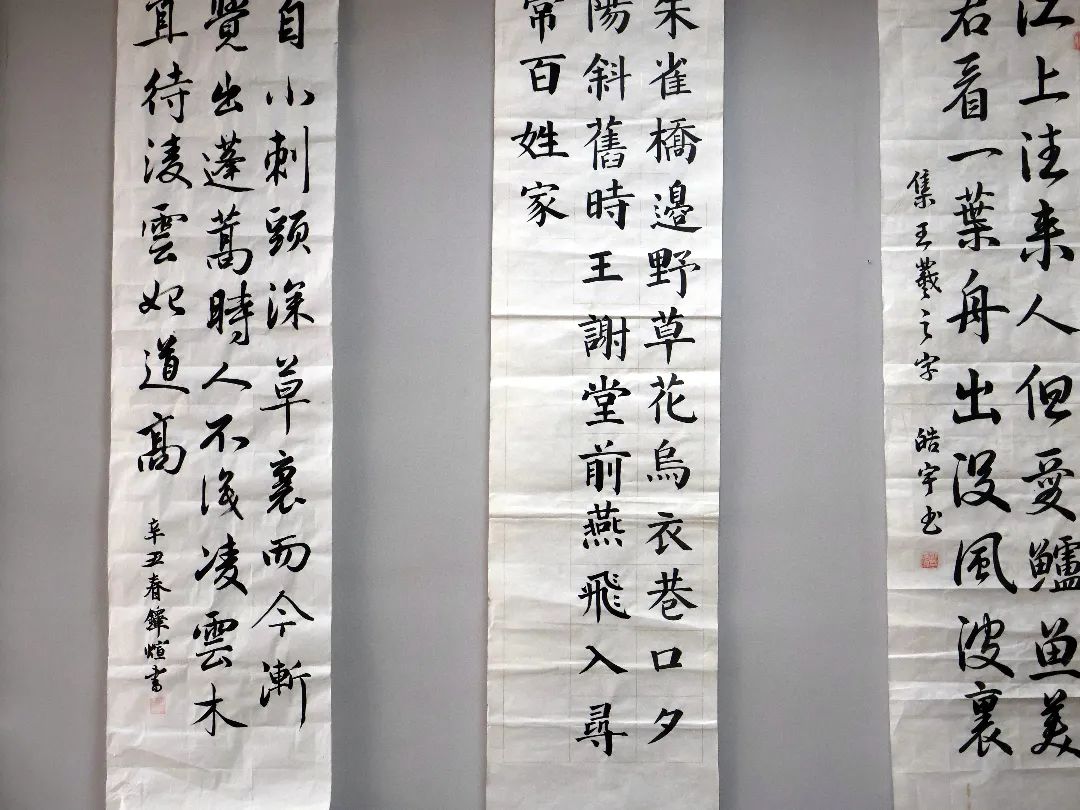 江上往来人但愛鱸魚美
君看一葉舟出没風波裏
集王羲之字 皓宇书
朱雀橋邊野草花烏衣巷口夕
陽斜舊時王謝堂前燕飛入尋
常百姓家
自小刺頭深草裏而今漸
覺出蓬蒿時人不識凌雲木
直待凌雲始道高
辛丑春煊書